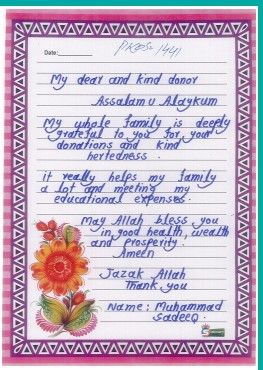 Date:
My dear and kind donor
Assalamu Alaykum
My whole family is deeply
grateful to you for your
donations and kind
hertedness.
it really helps my family
a lot and meeting my
educational expenses.
May Allah bless you
in good health, wealth
and prosperity.
Ameen
Jazak Allah
Thank you
Name: Muhammad
Sadeeq